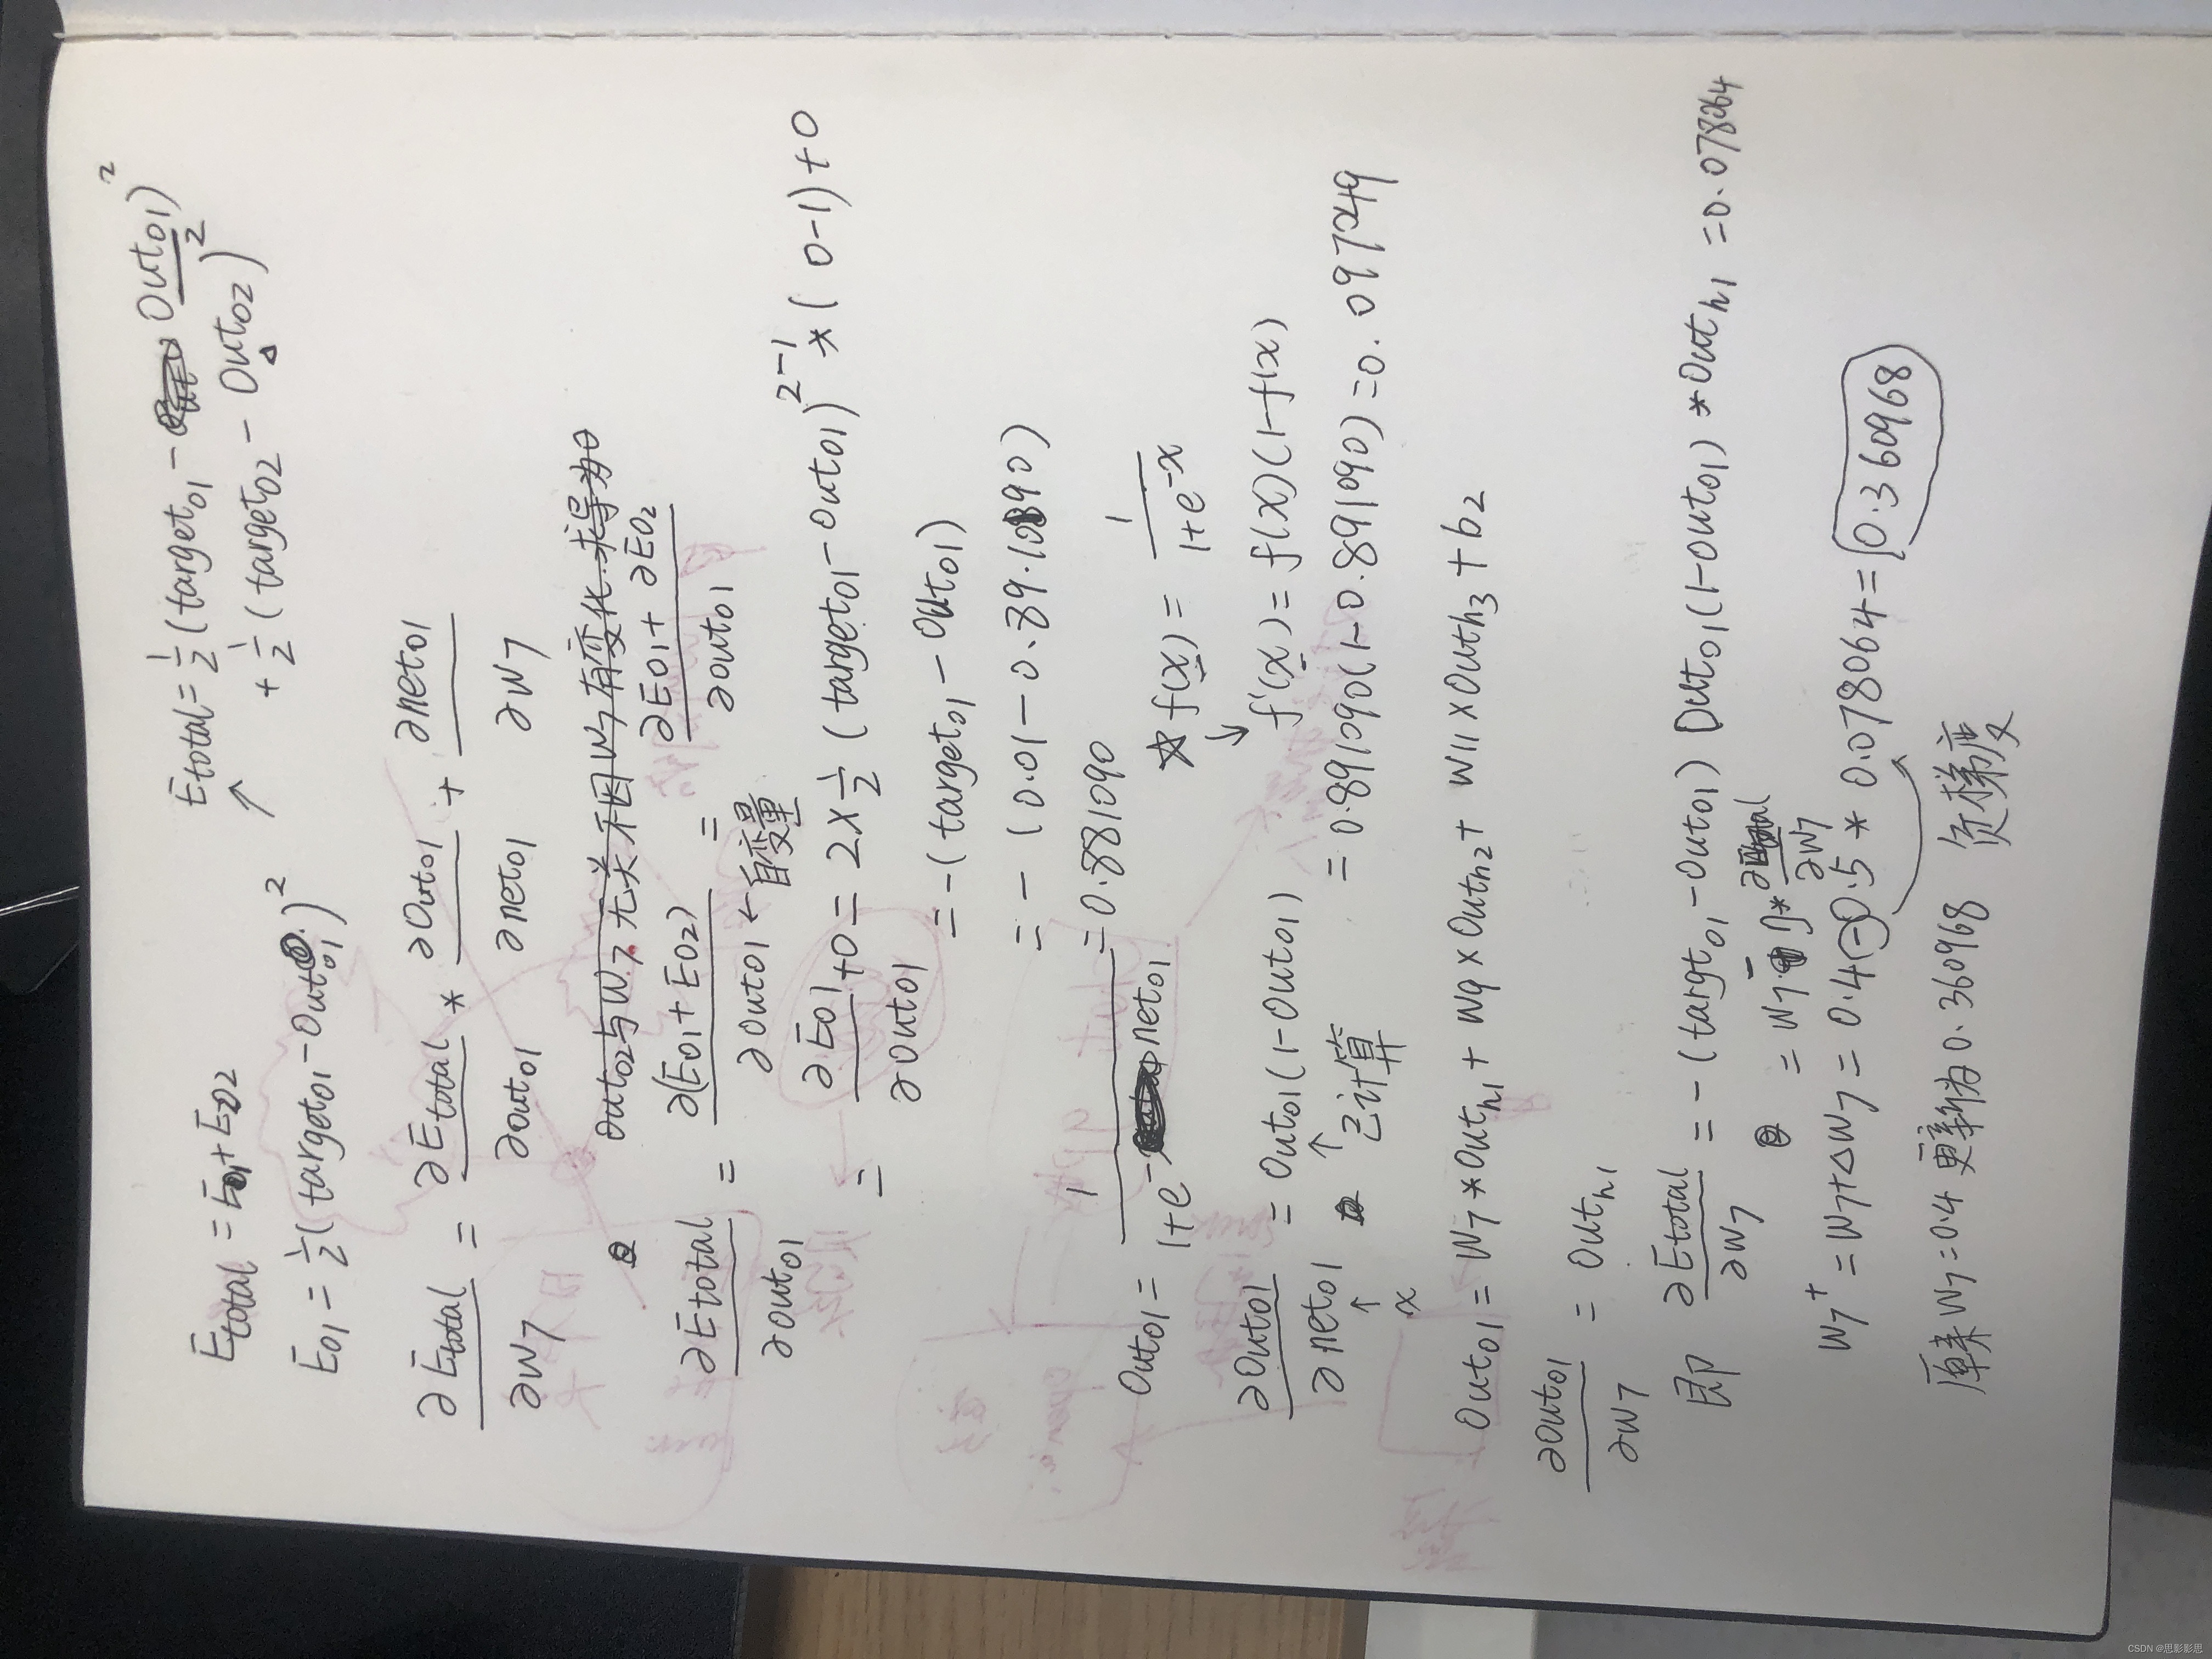 Etotal = E01 + E02
Etotal = 1/2 (target01 - Out01)²
↗ + 1/2 (target02 - Out02)²
E01 = 1/2 (target01 - Out01)²
∂Etotal/∂w7 = ∂Etotal/∂out01 * ∂Out01/∂net01 + ∂net01/∂w7
out02与w7无关不因w7有变化.求导为0
∂Etotal/∂out01 = ∂(E01+E02)/∂out01 ← 自变量 = ∂E01+∂E02/∂out01
= ∂E01/∂out01 + 0 = 2 × 1/2 (target01 - out01)²⁻¹ * (0-1) + 0
= -(target01 - out01)
= -(0.01 - 0.891090)
Out01 = 1/1+e^-net01 = 0.881090
☆ f(x) = 1/1+e^-x
↘ f'(x) = f(x)(1-f(x)
∂Out01/∂net01 = Out01(1-Out01)
↑ ↑ = 0.891090(1-0.891090) = 0.097049
x 已计算
Out01 = w7 * Outh1 + w9 × Outh2 + w11 × Outh3 + b2
∂Out01/∂w7 = Outh1
即 ∂Etotal/∂w7 = -(targt01 - Out01) Out01(1-Out01) * Outh1 = 0.078064
= w7 - η * ∂Etotal/∂w7
w7⁺ = w7 + Δw7 = 0.4 - 0.5 * 0.078064 = 0.360968
原来w7=0.4 更新为0.360968 负梯度
CSDN @思影影思